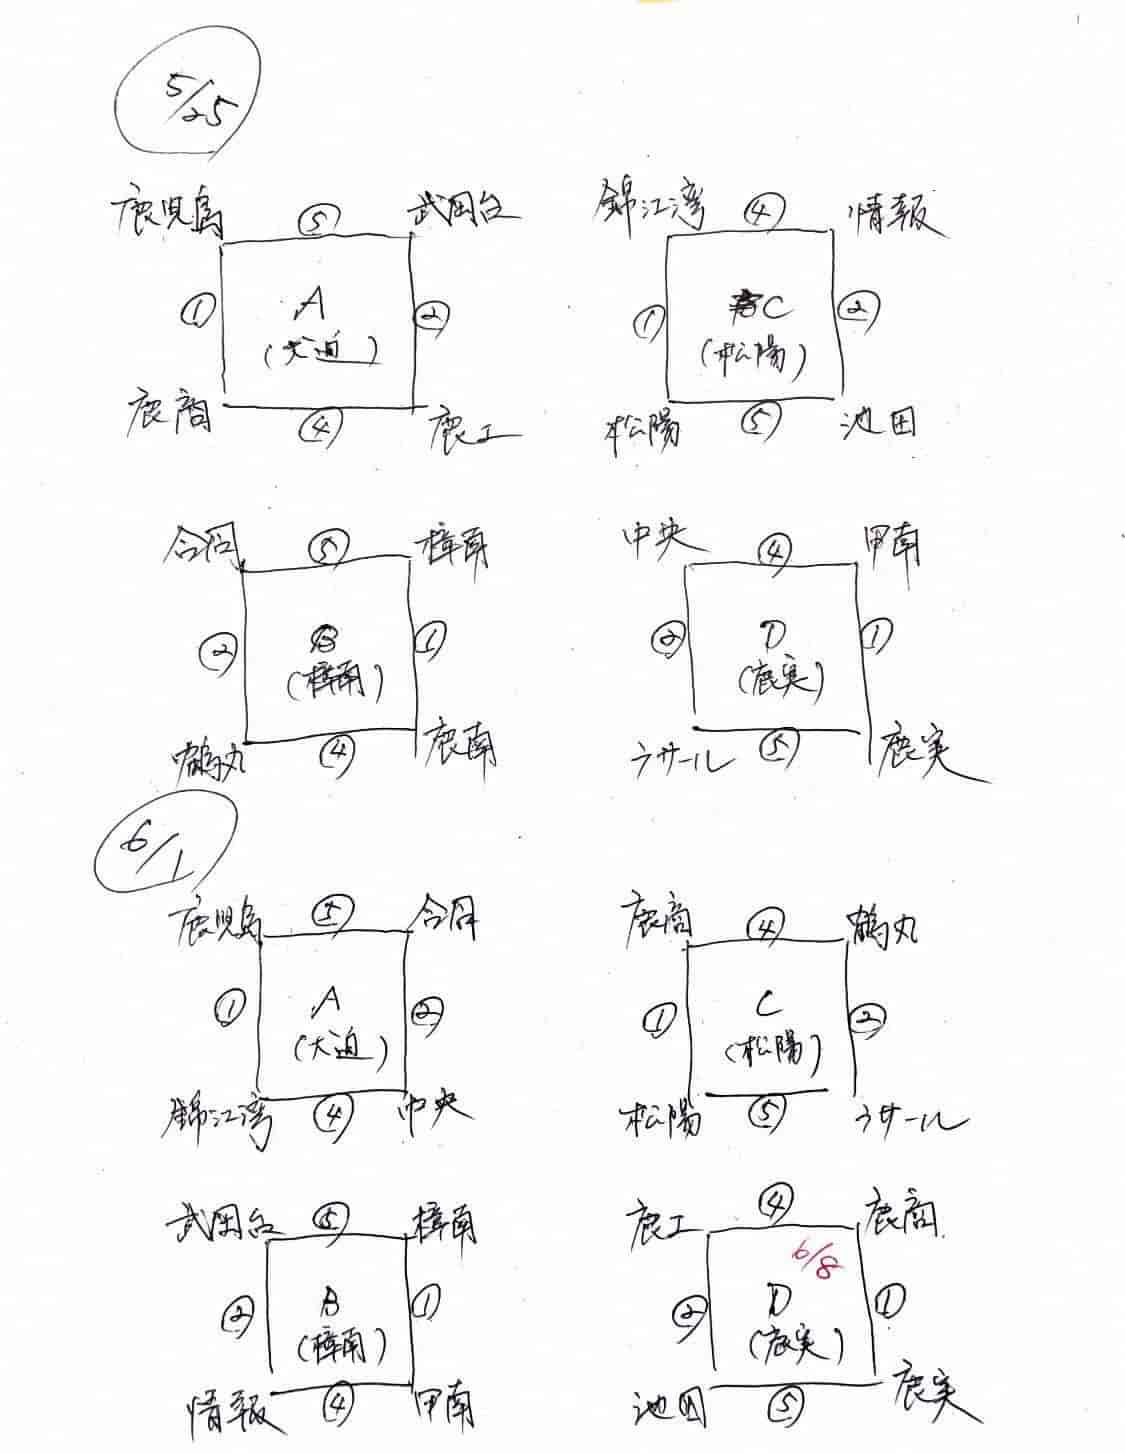 5/25
鹿児島 ⑤ 武岡台
① A ②
(大迫)
鹿商 ④ 鹿工
錦江湾 ④ 情報
① C ②
(松陽)
松陽 ⑤ 池田
合同 ⑤ 樟南
② B ①
(樟南)
鶴丸 ④ 鹿南
中央 ④ 甲南
② D ①
(鹿実)
ラサール ⑤ 鹿実
6/1
鹿児島 ⑤ 合同
① A ②
(大迫)
錦江湾 ④ 中央
鹿商 ④ 鶴丸
① C ②
(松陽)
松陽 ⑤ ラサール
武岡台 ⑤ 樟南
② B ①
(樟南)
情報 ④ 甲南
鹿工 ④ 鹿商
6/8
② D ①
(鹿実)
池田 ⑤ 鹿実